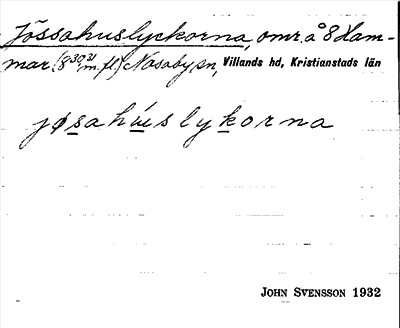 Jössahuslyckorna, omr. å 8 Ham-
mar (8³⁰,²¹ m. fl.) Nosaby sn, Villands hd, Kristianstads län
jøsahúslykorna
JOHN SVENSSON 1932